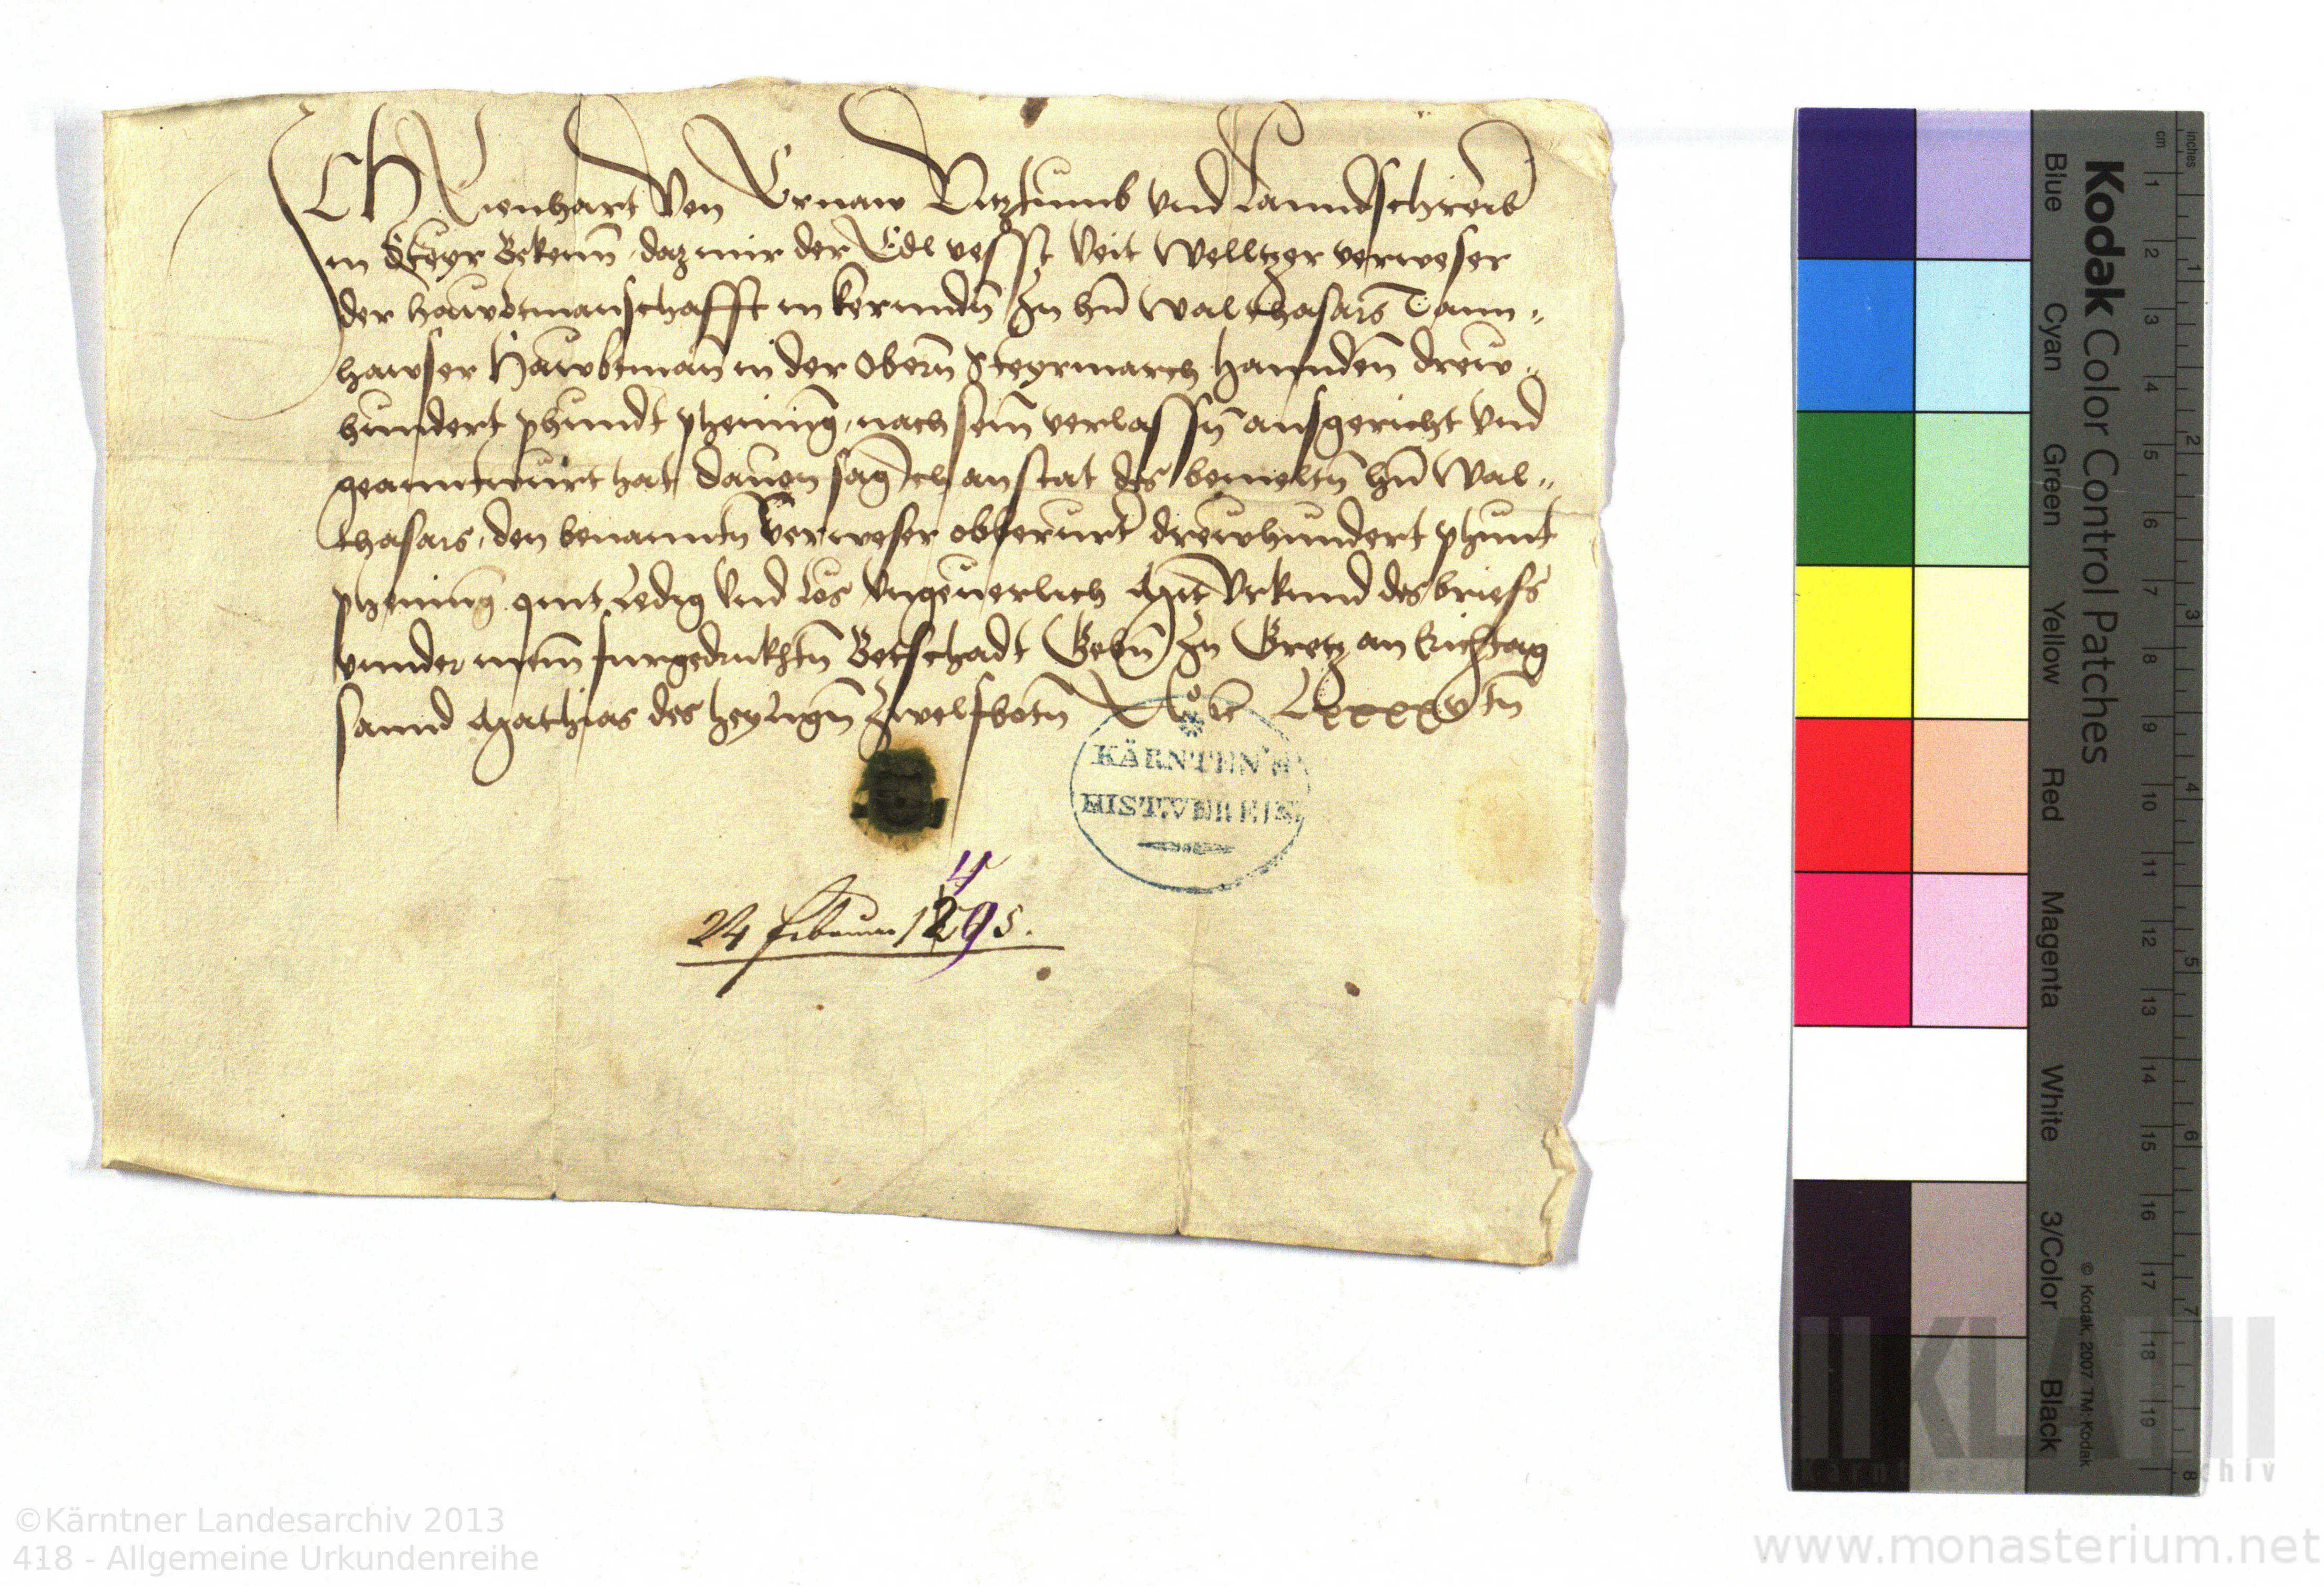 ICH Lienhart von Ernaw Vitztumb vnd lanndschreib
in Steyr Bekenn daz mir der Edl vesst Veit Welltzer verweser
der hawbtmanschafft in kernndn Zu hn Walthasars Tann„
hawser Hawbtman in der Obern Steyrmarch hannden drew„
hundert phundt phening nach seim verlassn ausgericht vnd
geanntwurt hat dauon sag Ich an stat des bemeltn hn Wal„
thasars den benanntn Verweser obberurt drewhundert phunt
phening quit ledig vnd los vngeuerlich Mit Vrkund des briefs
vnnder meim furgedruktn Betschadt Gebn Zu Gretz an Erichtag
sannd Mathias des heylign Zwelfbotn Lxxxxvtn
KÄRNTEN'S
HIST.VEREIN
4
24 februar 1295.
Kodak Color Control Patches
Blue Cyan Green Yellow Red Magenta White 3/Color Black
© Kodak, 2007 TM: Kodak
cm 1 2 3 4 5 6 7 8 10 11 12 13 14 15 16 17 18 19
inches 1 2 3 4 5 6 7 8
KLA
©Kärntner Landesarchiv 2013
418 - Allgemeine Urkundenreihe
www.monasterium.net